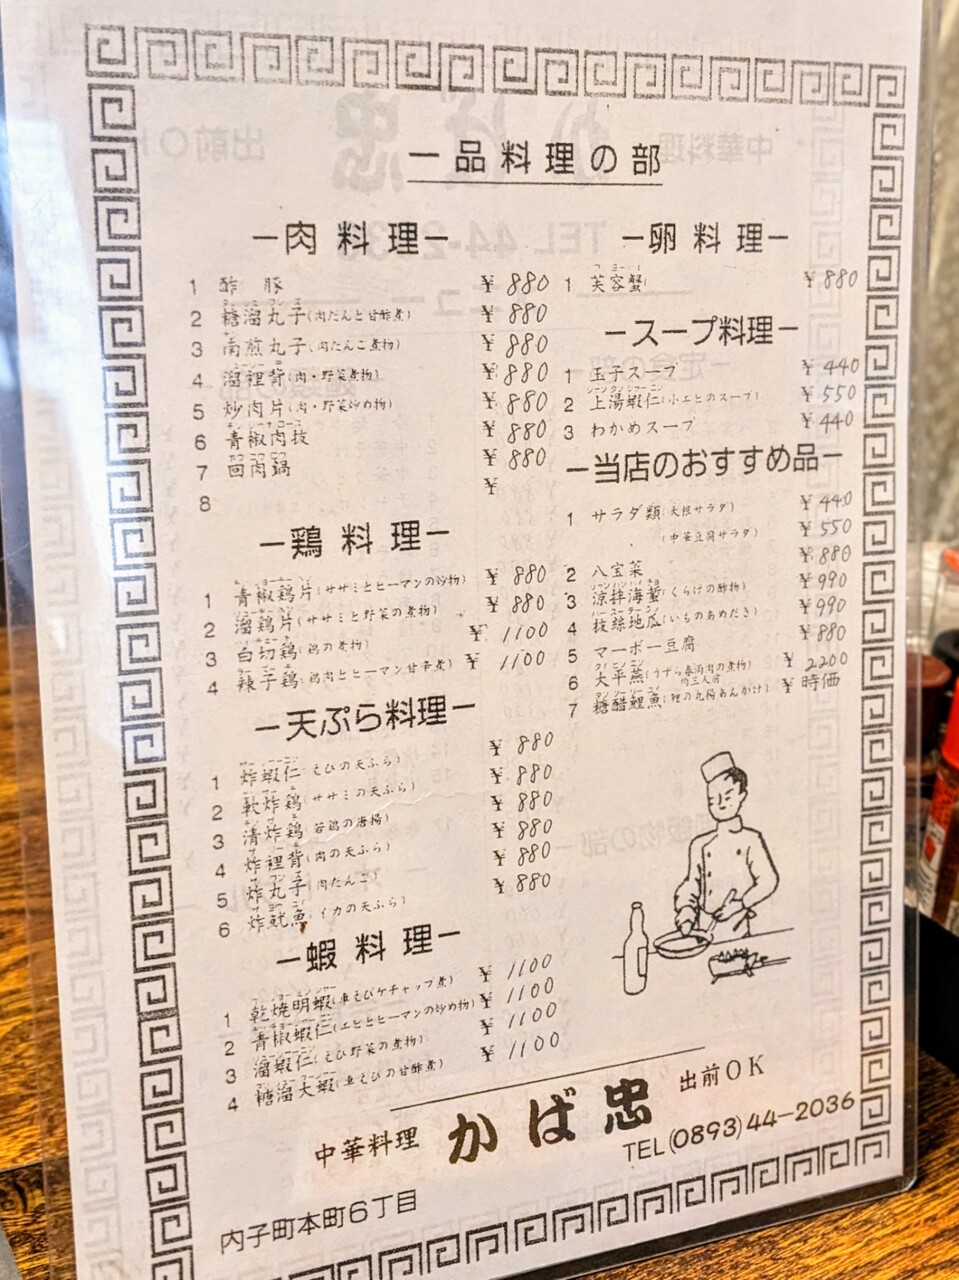 一品料理の部
ー肉料理ー
1 酢豚 ¥880
2 糖溜丸子(肉だんご甘酢煮) ¥880
3 南煎丸子(肉だんご煮物) ¥880
4 溜裡背(肉・野菜煮物) ¥880
5 炒肉片(肉・野菜炒め物) ¥880
6 青椒肉技 ¥880
7 回肉鍋 ¥880
8 ¥
ー鶏料理ー
1 青椒鶏片(ササミとピーマンの炒物) ¥880
2 溜鶏片(ササミと野菜の煮物) ¥880
3 白切鶏(鶏の煮物) ¥1100
4 辣子鶏(鶏肉とピーマン甘辛煮) ¥1100
ー天ぷら料理ー
1 炸蝦仁(えびの天ぷら) ¥880
2 軟炸鶏(ササミの天ぷら) ¥880
3 清炸鶏(若鶏の唐揚) ¥880
4 炸裡背(肉の天ぷら) ¥880
5 炸丸子(肉だんご) ¥880
6 炸魷魚(イカの天ぷら) ¥880
ー蝦料理ー
1 乾焼明蝦(車えびケチャップ煮) ¥1100
2 青椒蝦仁(エビとピーマンの炒め物) ¥1100
3 溜蝦仁(えび野菜の煮物) ¥1100
4 糖溜大蝦(車えびの甘酢煮) ¥1100
ー卵料理ー
1 芙容蟹 ¥880
ースープ料理ー
1 玉子スープ ¥440
2 上湯蝦仁(小エビのスープ) ¥550
3 わかめスープ ¥440
ー当店のおすすめ品ー
1 サラダ類(大根サラダ) ¥440
(中華豆腐サラダ) ¥550
2 八宝菜 ¥880
3 涼拌海蜇(くらげの酢物) ¥990
4 抜絲地瓜(いものあめだき) ¥990
5 マーボー豆腐 ¥880
6 太平燕(うずら春雨肉の煮物) 約三人前 ¥2200
7 糖醋鯉魚(鯉の丸揚あんかけ) ¥時価
中華料理 かば忠 出前OK
TEL(0893)44-2036
内子町本町6丁目